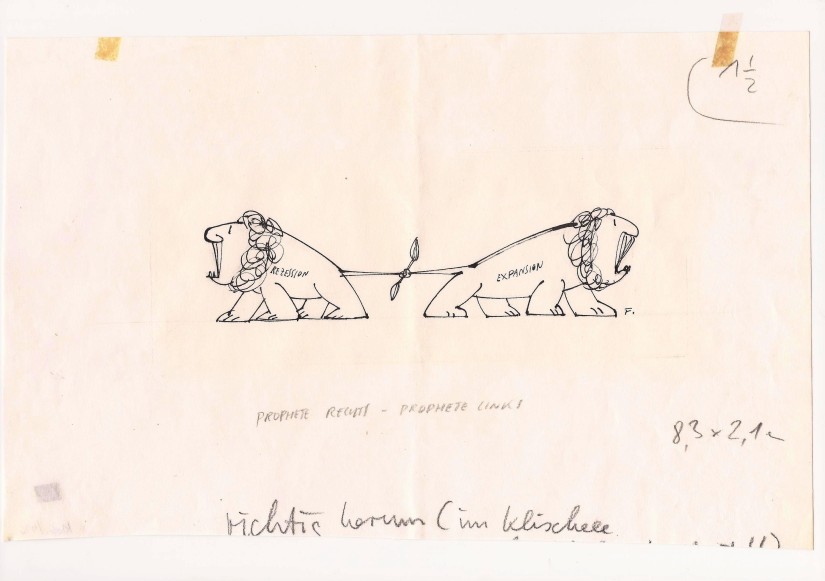 1 1/2
REZESSION
EXPANSION
F.
PROPHETE RECHTS - PROPHETE LINKS
8,3 x 2,1
richtig herum (im Klischee